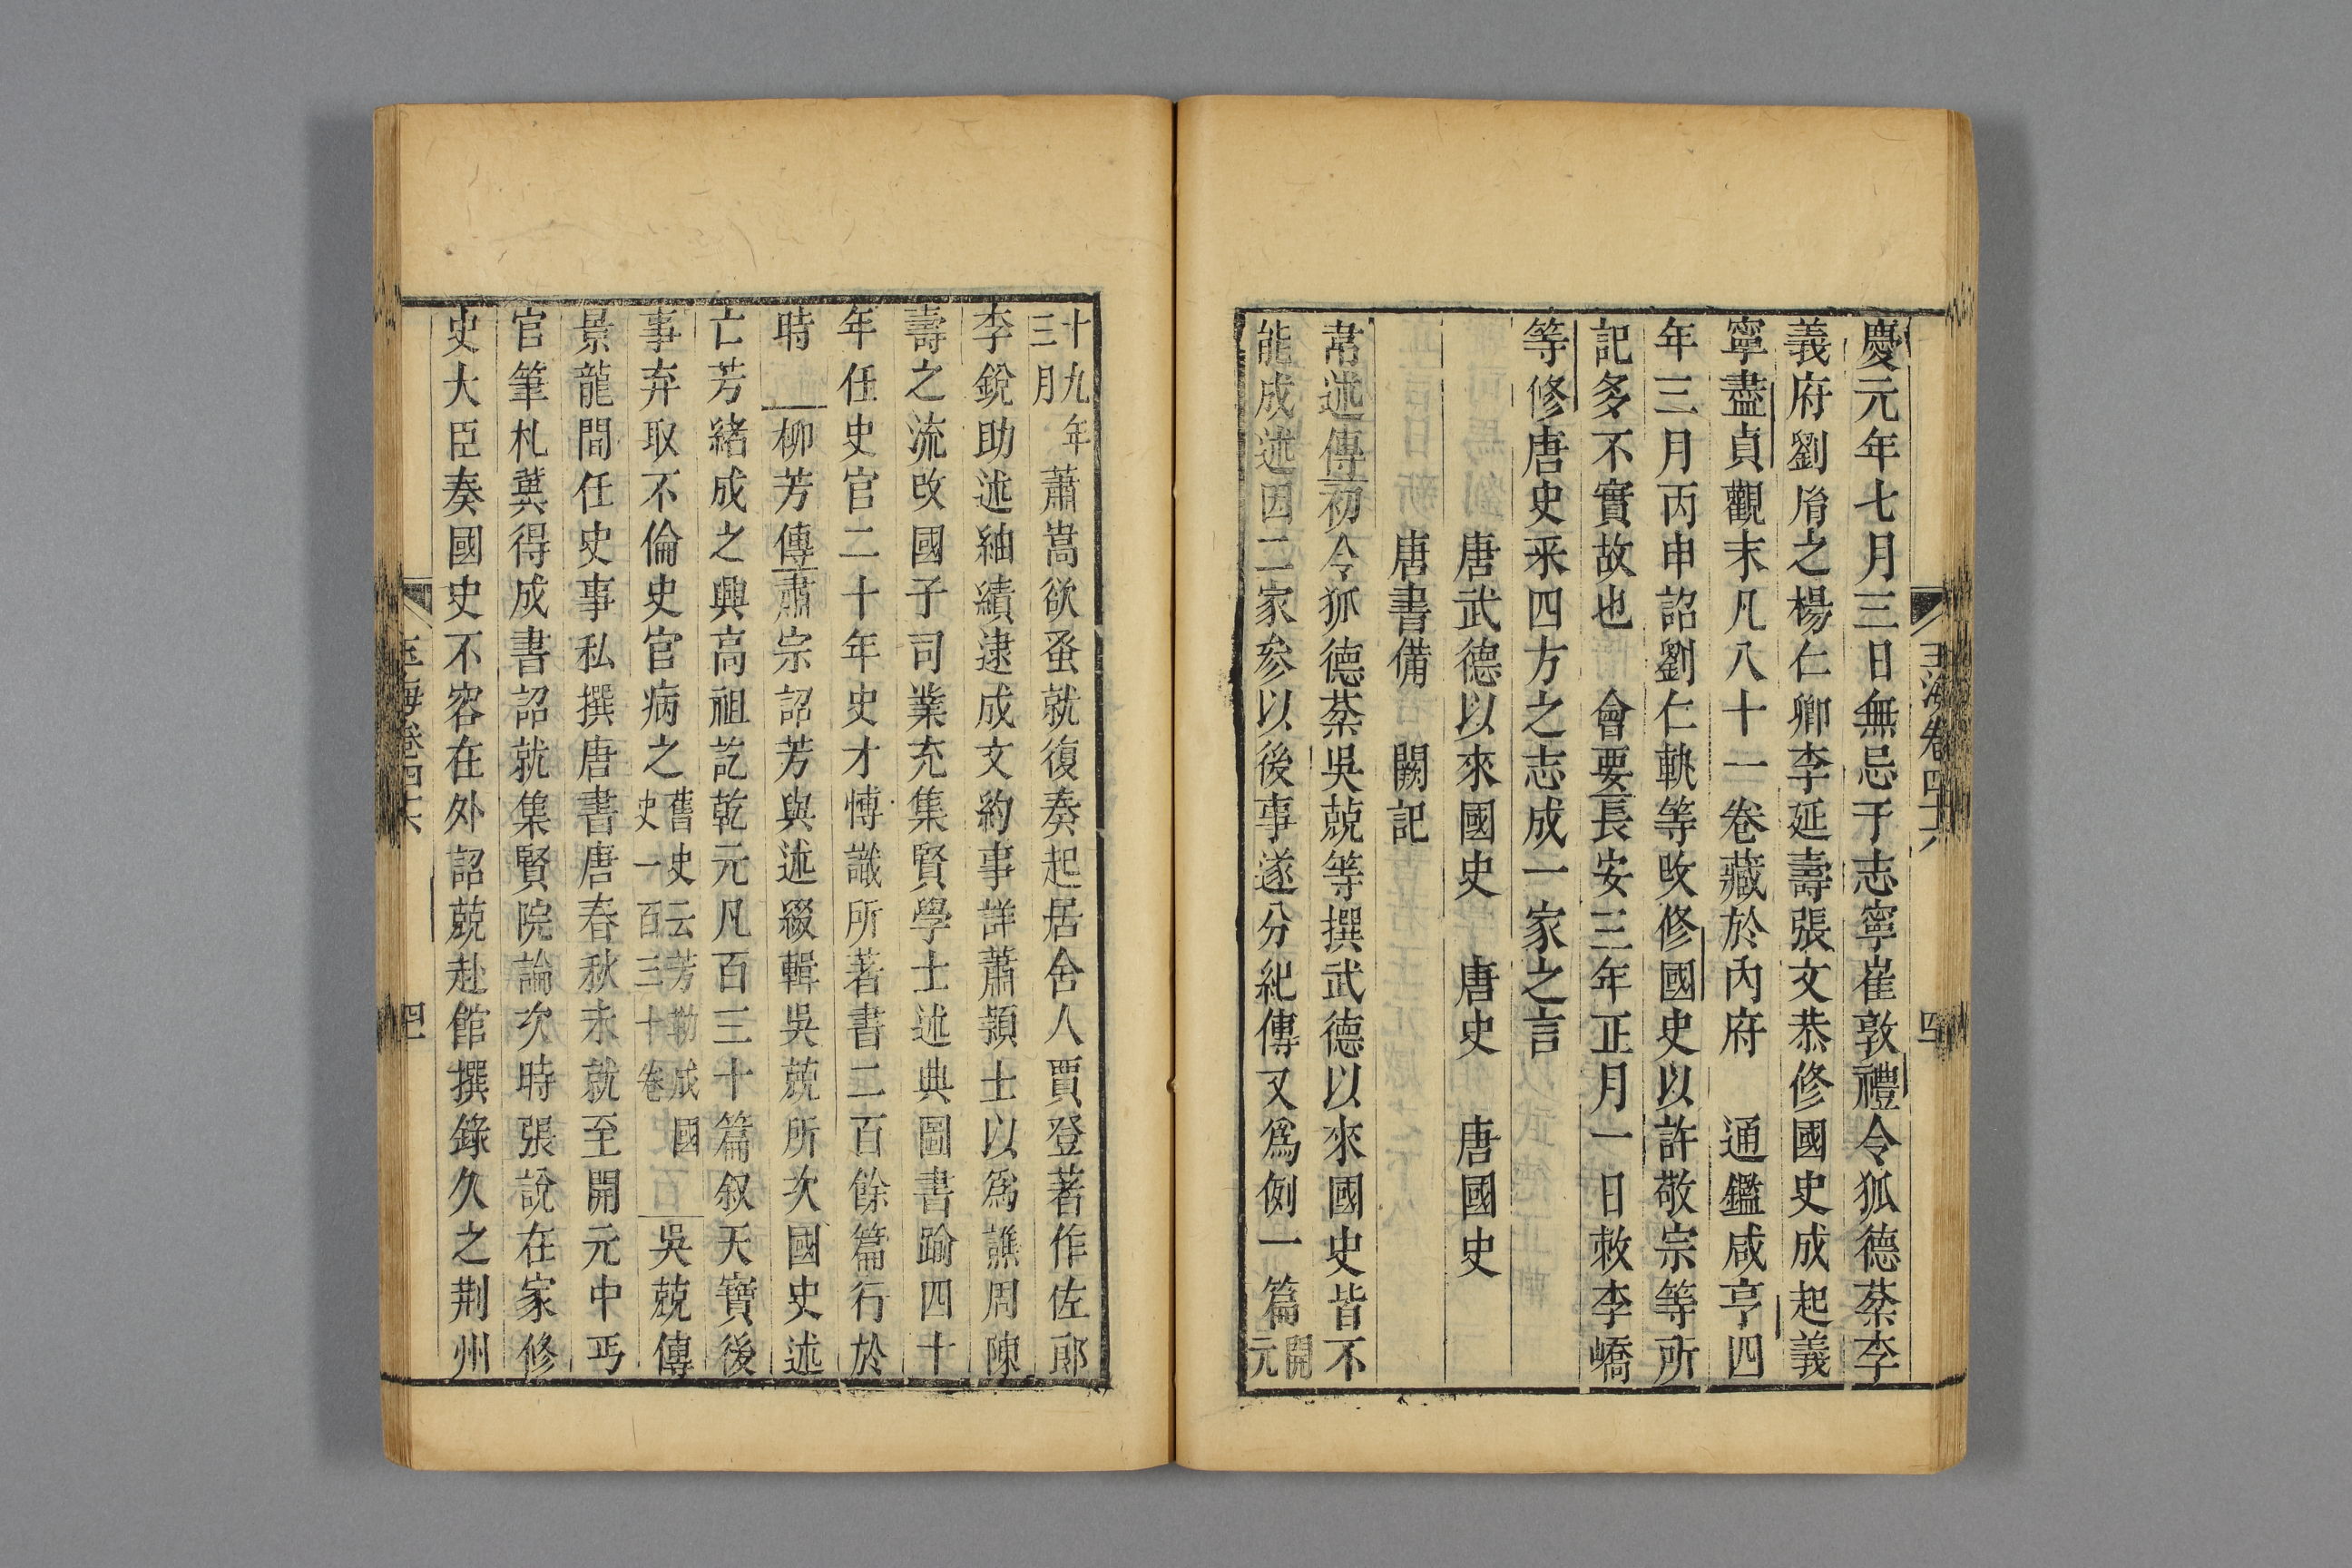 慶元年七月三日無忌于志寧崔敦禮令狐德棻李
義府劉胤之楊仁卿李延壽張文恭修國史成起義
寧盡貞觀末凡八十一卷藏於內府 通鑑咸亨四
年三月丙申詔劉仁軌等改修國史以許敬宗等所
記多不實故也 會要長安三年正月一日敕李嶠
等修唐史采四方之志成一家之言
唐武德以來國史 唐史 唐國史
唐書備 闕記
韋述傳初令狐德棻吳兢等撰武德以來國史皆不
能成述因二家參以後事遂分紀傳又爲例一篇開
元
十九年
三月蕭嵩欲蚤就復奏起居舍人賈登著作佐郎
李銳助述紬績逮成文約事詳蕭頴士以爲譙周陳
壽之流改國子司業充集賢學士述典圖書踰四十
年任史官二十年史才慱識所著書二百餘篇行於
時 柳芳傳肅宗詔芳與述綴輯吳兢所次國史述
亡芳緒成之興高祖訖乾元凡百三十篇叙天寶後
事弃取不倫史官病之舊史云芳勒成國
史一百三十卷 吳兢傳
景龍間任史事私撰唐書唐春秋未就至開元中丐
官筆札冀得成書詔就集賢院論次時張說在家修
史大臣奏國史不容在外詔兢赴館撰錄久之荆州
玉海卷四十六